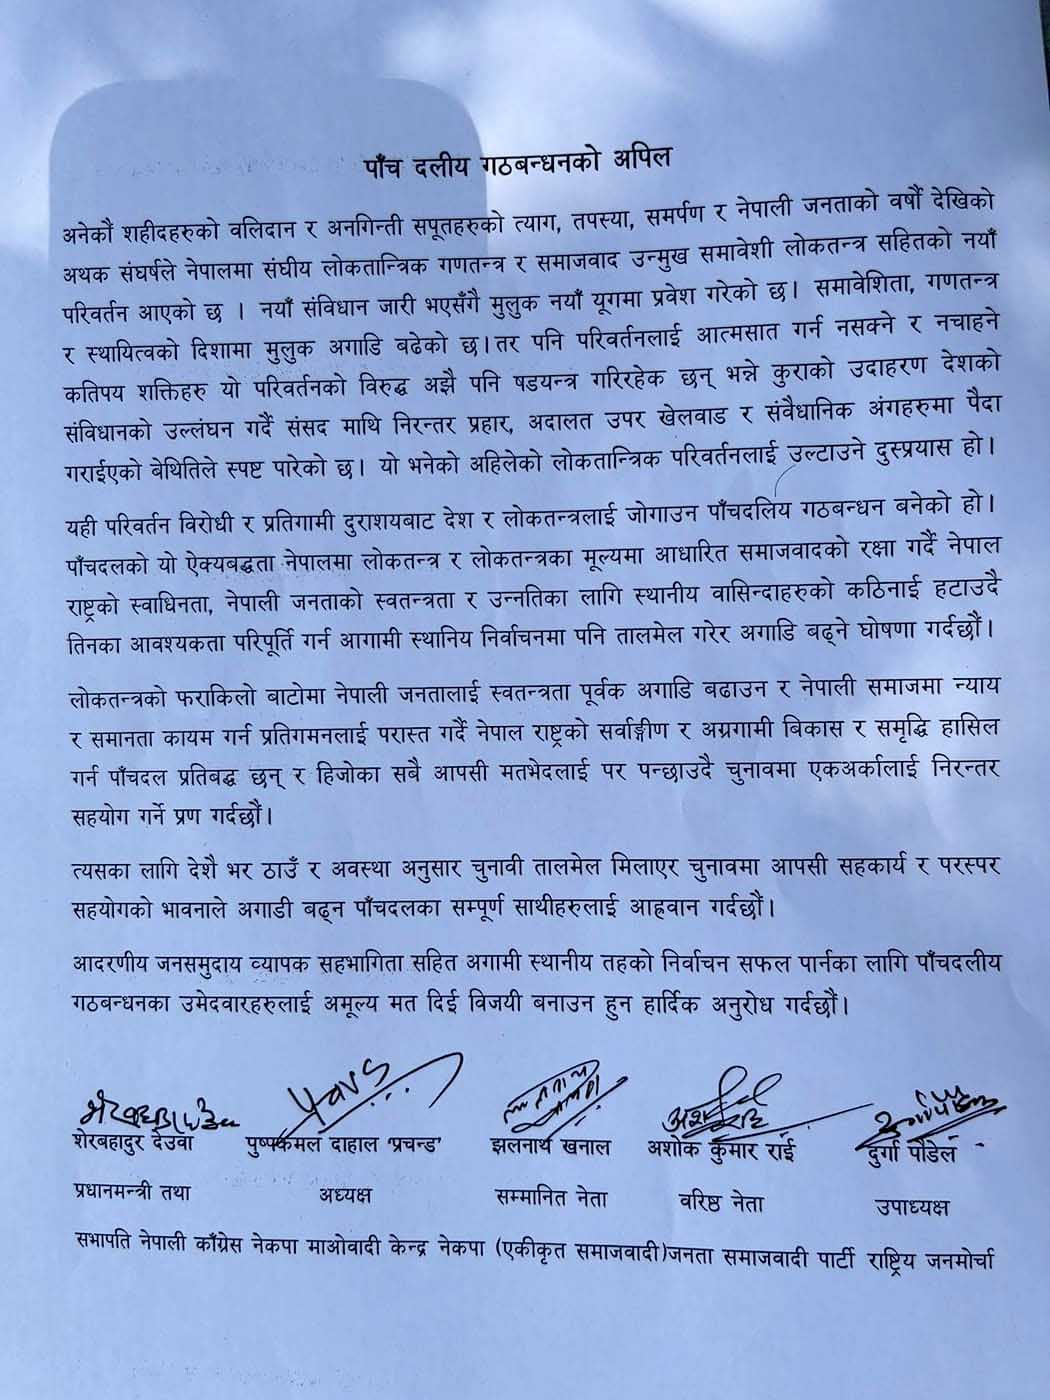 पाँच दलीय गठबन्धनको अपिल
अनेकौं शहीदहरुको वलिदान र अनगिन्ती सपूतहरुको त्याग, तपस्या, समर्पण र नेपाली जनताको वर्षौं देखिको
अथक संघर्षले नेपालमा संघीय लोकतान्त्रिक गणतन्त्र र समाजवाद उन्मुख समावेशी लोकतन्त्र सहितको नयाँ
परिवर्तन आएको छ । नयाँ संविधान जारी भएसँगै मुलुक नयाँ यूगमा प्रवेश गरेको छ। समावेशिता, गणतन्त्र
र स्थायित्वको दिशामा मुलुक अगाडि बढेको छ।तर पनि परिवर्तनलाई आत्मसात गर्न नसक्ने र नचाहने
कतिपय शक्तिहरु यो परिवर्तनको विरुद्ध अझै पनि षडयन्त्र गरिरहेक छन् भन्ने कुराको उदाहरण देशको
संविधानको उल्लंघन गर्दै संसद माथि निरन्तर प्रहार, अदालत उपर खेलवाड र संवैधानिक अंगहरुमा पैदा
गराईएको बेथितिले स्पष्ट पारेको छ। यो भनेको अहिलेको लोकतान्त्रिक परिवर्तनलाई उल्टाउने दुस्प्रयास हो।
यही परिवर्तन विरोधी र प्रतिगामी दुराशयबाट देश र लोकतन्त्रलाई जोगाउन पाँचदलिय गठबन्धन बनेको हो।
पाँचदलको यो ऐक्यबद्धता नेपालमा लोकतन्त्र र लोकतन्त्रका मूल्यमा आधारित समाजवादको रक्षा गर्दै नेपाल
राष्ट्रको स्वाधिनता, नेपाली जनताको स्वतन्त्रता र उन्नतिका लागि स्थानीय वासिन्दाहरुको कठिनाई हटाउदै
तिनका आवश्यकता परिपूर्ति गर्न आगामी स्थानिय निर्वाचनमा पनि तालमेल गरेर अगाडि बढ्ने घोषणा गर्दछौं।
लोकतन्त्रको फराकिलो बाटोमा नेपाली जनतालाई स्वतन्त्रता पूर्वक अगाडि बढाउन र नेपाली समाजमा न्याय
र समानता कायम गर्न प्रतिगमनलाई परास्त गर्दै नेपाल राष्ट्रको सर्वाङ्गीण र अग्रगामी बिकास र समृद्धि हासिल
गर्न पाँचदल प्रतिबद्ध छन् र हिजोका सबै आपसी मतभेदलाई पर पन्छाउदै चुनावमा एकअर्कालाई निरन्तर
सहयोग गर्ने प्रण गर्दछौं।
त्यसका लागि देशै भर ठाउँ र अवस्था अनुसार चुनावी तालमेल मिलाएर चुनावमा आपसी सहकार्य र परस्पर
सहयोगको भावनाले अगाडी बढ्न पाँचदलका सम्पूर्ण साथीहरुलाई आह्रवान गर्दछौं।
आदरणीय जनसमुदाय व्यापक सहभागिता सहित अगामी स्थानीय तहको निर्वाचन सफल पार्नका लागि पाँचदलीय
गठबन्धनका उमेदवारहरुलाई अमूल्य मत दिई विजयी बनाउन हुन हार्दिक अनुरोध गर्दछौं।
शेरबहादुर देउवा पुष्पकमल दाहाल 'प्रचन्ड' झलनाथ खनाल अशोक कुमार राई दुर्गा पौडेल
प्रधानमन्त्री तथा अध्यक्ष सम्मानित नेता वरिष्ठ नेता उपाध्यक्ष
सभापति नेपाली काँग्रेस नेकपा माओवादी केन्द्र नेकपा (एकीकृत समाजवादी)जनता समाजवादी पार्टी राष्ट्रिय जनमोर्चा